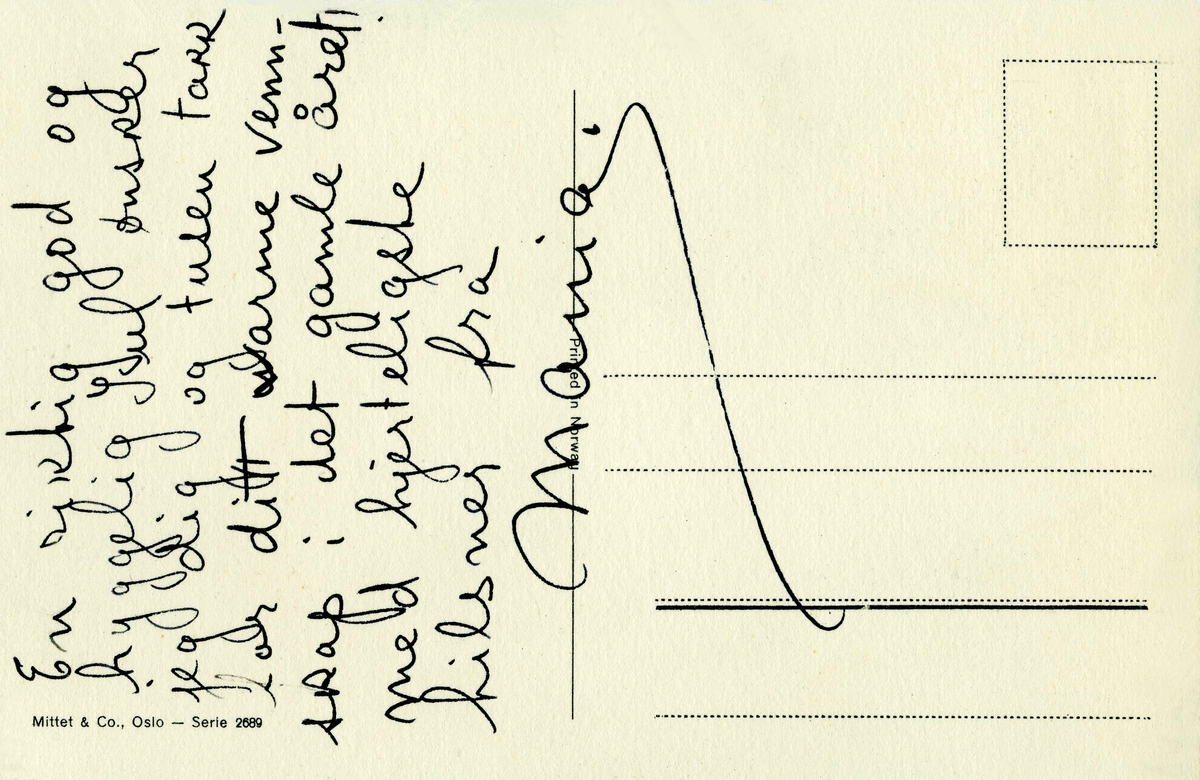 En riktig god og
hyggelig jul ønsker
jeg dig og tusen takk
for ditt varme venn-
skap i det gamle året,
med hjerteligste
hilsner fra
Maria.
Printed in Norway
Mittet & Co., Oslo — Serie 2689